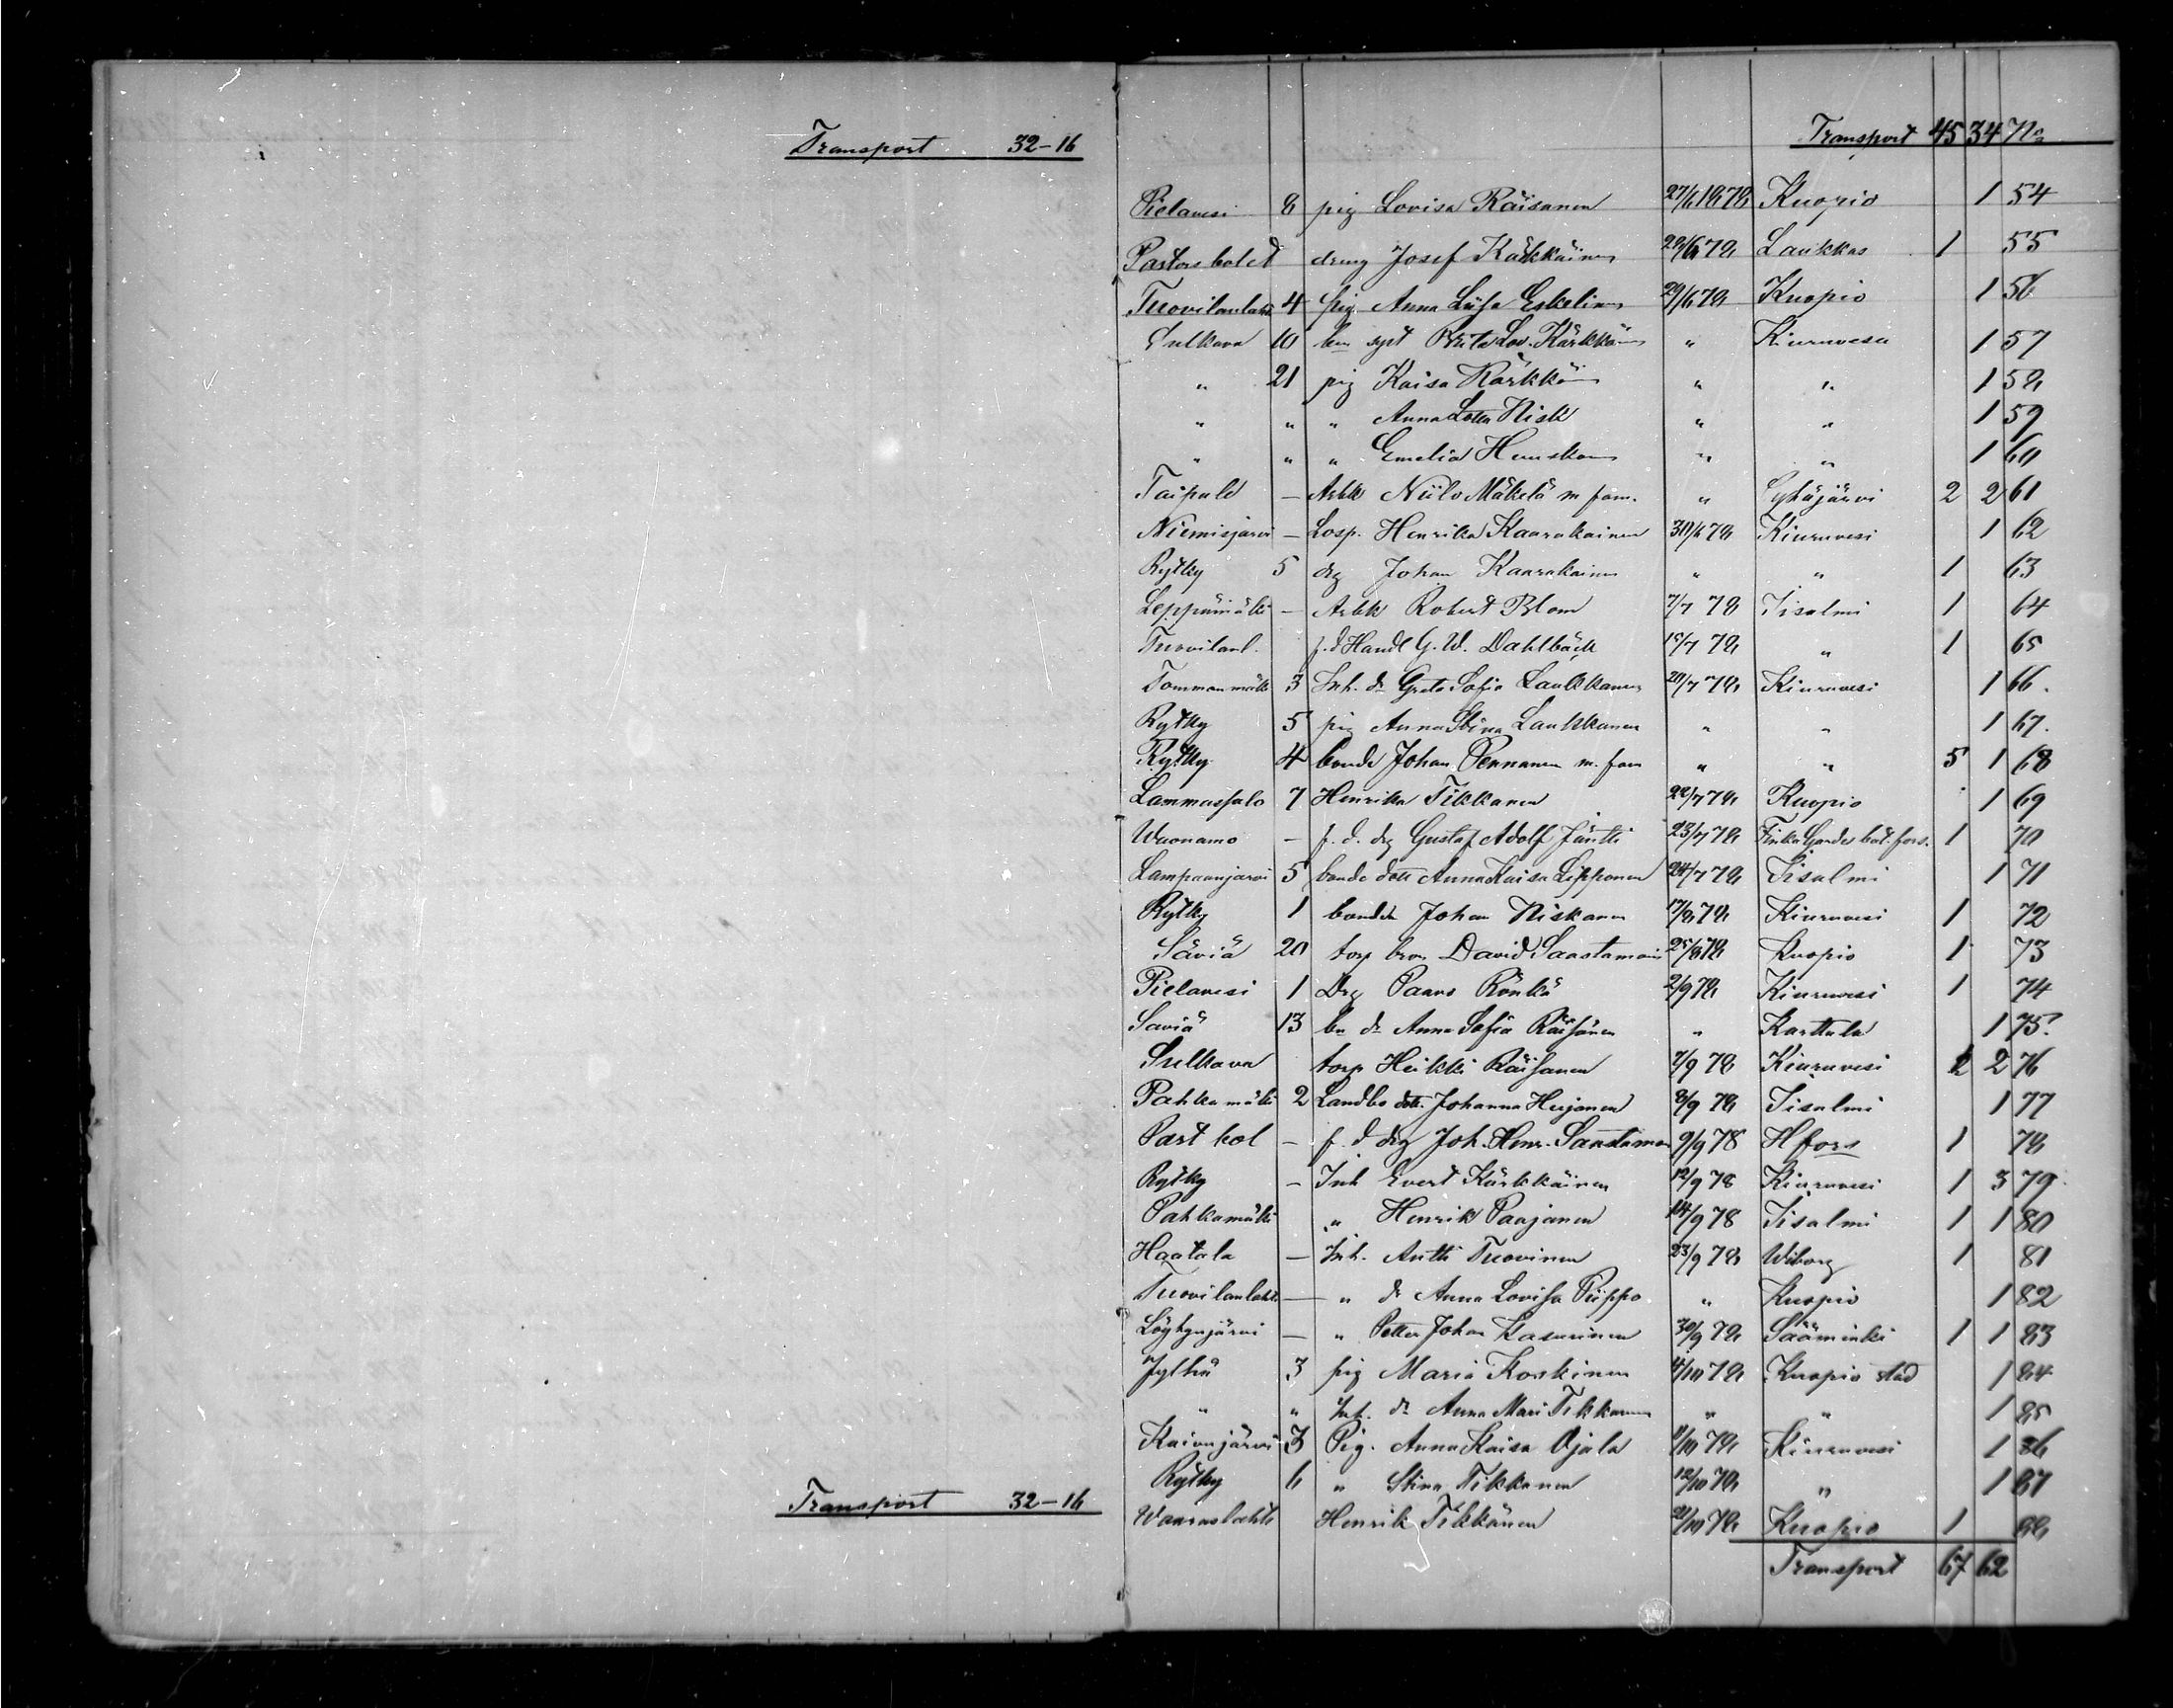 Transport 32-16
Transport 32-16
Transport 45 34 No
Pielavesi 8 pig Lovisa Räisänen 27/6 1878 Kuopio 1 54
Pastorsbolet dreng Josef Kärkkäinen 29/6 78 Laukkas 1 55
Tuovilanlahti 4 pig Anna Liisa Eskelinen 29/6 78 Kuopio 1 56
Sulkava 10 Brita Lov. Kärkkäinen " Kiuruvesi 1 57
" 21 pig Kaisa Kärkkäinen " " 1 58
" " " Anna Lotta Nisk " " 1 59
" " " Emelia Huuskonen " " 1 60
Taipale – Arbk Niilo Mäkelä m fam. " Pyhäjärvi 2 2 61
Niemisjärvi – Losp. Henrika Kaarakainen 30/6 78 Kiuruvesi 1 62
Rytky 5 drg Johan Kaarakainen " " 1 63
Leppämäki – Arbk Robert Blom 7/7 78 Iisalmi 1 64
Tuovilanl. f.d Handl G.W. Dahlbäck 15/7 78 " 1 65
Tommonmäki 3 Inh. dr Greta Sofia Laukkanen 20/7 78 Kiuruvesi 1 66.
Rytky 5 pig Anna Stina Laukkanen " " 1 67.
Rytky 4 bonde Johan Pennanen m. fam " " 5 1 68
Lammassalo 7 Henrika Tikkanen 22/7 78 Kuopio 1 69
Waonamo – f.d. drg Gustaf Adolf Jäntti 23/7 78 Finska Garde bat. fors. 1 70
Lampaanjärvi 5 bonde dott Anna Kaisa Lipponen 24/7 78 Iisalmi 1 71
Rytky 1 bonden Johan Niskanen 17/8 78 Kiuruvesi 1 72
Säviä 20 torp bror David Saastamoin 25/8 78 Kuopio 1 73
Pielavesi 1 Drg Paavo Rönkä 2/9 78 Kiuruvesi 1 74
Saviä 13 bo dr Anna Sofia Räisänen " Karttula 1 75.
Sulkava torp Heikki Räisänen 7/9 78 Kiuruvesi 2 2 76
Pahkamäki 2 Landbo dott. Johanna Heijonen 8/9 78 Iisalmi 1 77
Past bol – f.d drg Joh. Henr. Saastamon 9/9 78 Hfors 1 78
Rytky – Inh Evert Kärkkäinen 12/9 78 Kiuruvesi 1 3 79
Pahkamäki " Henrik Paajanen 14/9 78 Iisalmi 1 1 80
Haatala – Inh. Antti Tuovinen 23/9 78 Wiborg 1 81
Tuovilanlahti – " dr Anna Lovisa Piippo " Kuopio 1 82
Löytynjärvi – " Petter Johan Kasurinen 30/9 78 Sääminki 1 1 83
Jylhä 3 pig Maria Koskinen 4/10 78 Kuopio stad 1 84
" " Inh. dr Anna Mari Tikkanen " " 1 85
Kaivujärvi 3 Pig. Anna Kaisa Ojala 78 Kiuruvesi 1 86
Rytky 6 " Stina Tikkanen 12/10 78 " 1 87
Waaraslahti Henrik Tikkanen 21/10 78 Kuopio 1 88
Transport 67 62